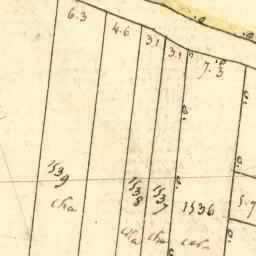 6.3
4.6
3.1
3.1
7.3
1539
cka
1538
cka
1537
cka
1536
5.7